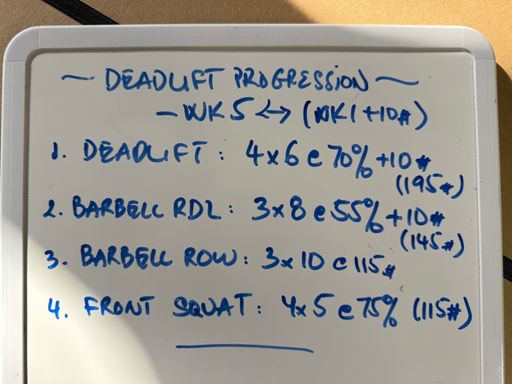 ~ DEADLIFT PROGRESSION ~
- WK5 <-> (WK1 +10#)
1. DEADLIFT: 4x6 @ 70% +10#
(195#)
2. BARBELL RDL: 3x8 @ 55% +10#
(145#)
3. BARBELL ROW: 3x10 @ 115#
4. FRONT SQUAT: 4x5 @ 75% (115#)